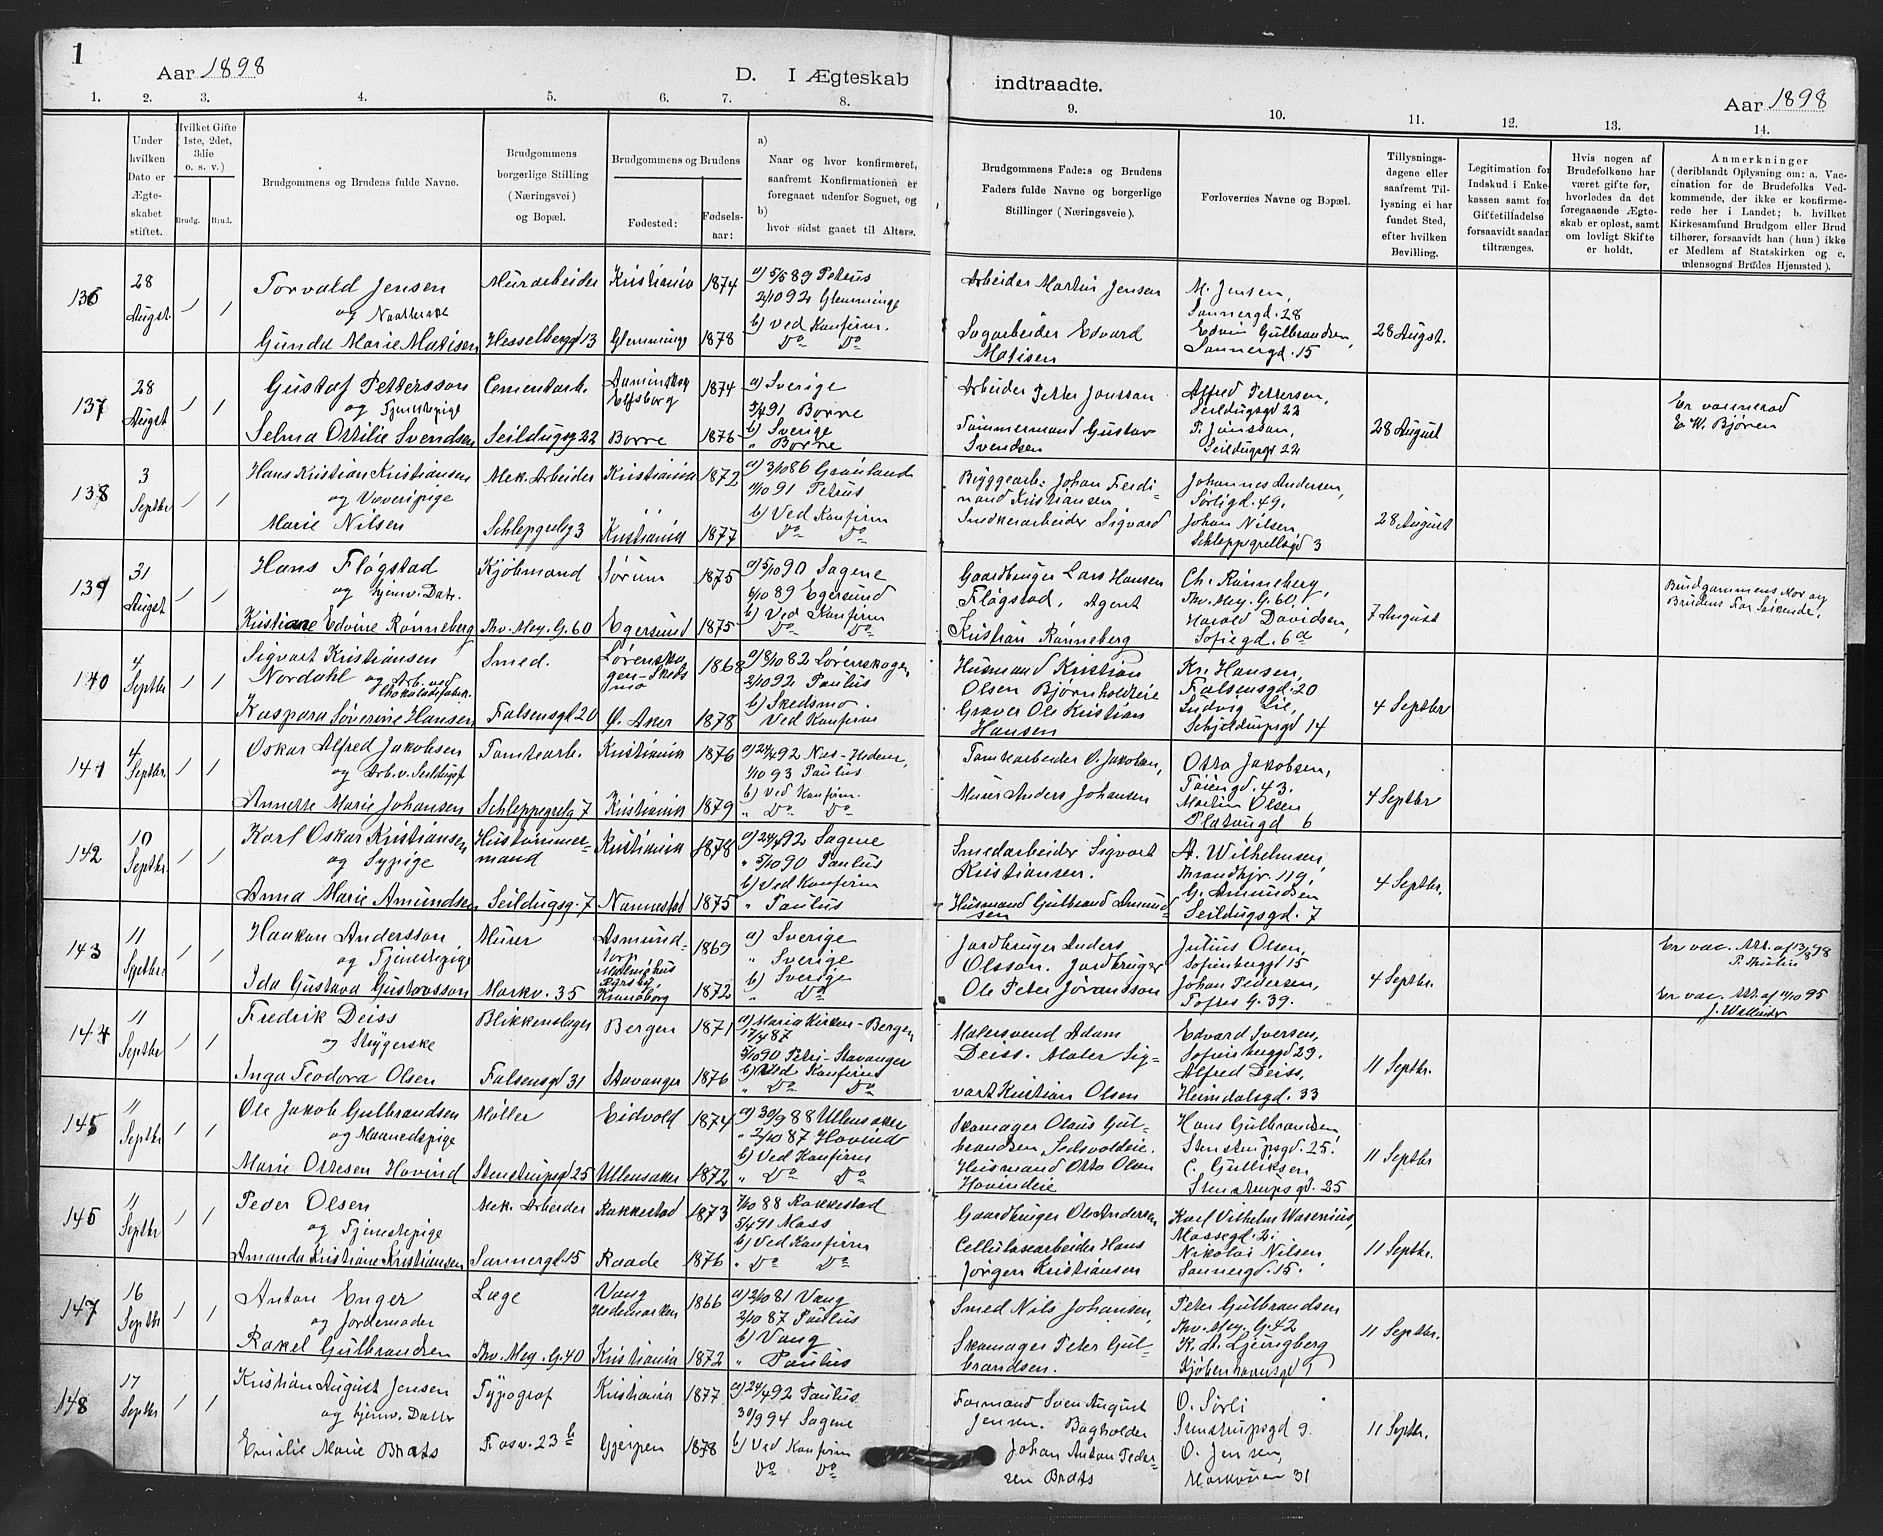 1
Aar 1898
D. I Ægteskab
indtraadte.
Aar 1898
1. 2. 3. 4. 5. 6. 7. 8. 9. 10. 11. 12. 13. 14.
Under hvilken Dato er Ægteskabet stiftet.
Hvilket Gifte (1ste, 2det, 3die o. s. v.)
Brudg. Brud.
Brudgommens og Brudens fulde Navne.
Brudgommens borgerlige Stilling (Næringsvei) og Bopæl.
Brudgommens og Brudens
Fødested:
Fødselsaar:
a) Naar og hvor konfirmeret, saafremt Konfirmationen er foregaaet udenfor Sognet, og
b) hvor sidst gaaet til Alters.
Brudgommens Faders og Brudens Faders fulde Navne og borgerlige Stillinger (Næringsveie).
Forlovernes Navne og Bopæl.
Tillysningsdagene eller saafremt Tillysning ei har fundet Sted, efter hvilken Bevilling.
Legitimation for Indskud i Enkekassen samt for Giftetilladelse forsaavidt saadan tiltrænges.
Hvis nogen af Brudefolkene har været gifte før, hvorledes da det foregaaende Ægteskab er opløst, samt om lovligt Skifte er holdt.
Anmerkninger (deriblandt Oplysning om: a. Vaccination for de Brudefolks Vedkommende, der ikke er konfirmerede her i Landet; b. hvilket Kirkesamfund Brudgom eller Brud tilhører, forsaavidt han (hun) ikke er Medlem af Statskirken og c. udensogns Brudes Hjemsted).
136 28 Augst. 1 1
Torvald Jensen Murarbeider Kristiania 1874 a) 5/5 89 Petrus
og 2/10 92 Glemminge
Gunda Marie Matisen Hesselbergd 13 Glemminge 1878 b) Ved Konfirm.
Do Do
Arbeider Martin Jensen M. Jensen,
Sannergd. 28
Sagarbeider Edvard Edvin Gulbrandsen, 28 Augst.
Matisen Sannergd. 15
137 28 Augst 1 1
Gustaf Pettersson Cementarb. Elfsborg 1874 a) Sverige
og Tjenestepige 5/4 91 Borre
Selma Ottilie Svendsen Seildugsg 22 Borre 1876 b) Sverige
" Borre
Arbeider Petter Jonsson Alfred Pettersen,
Seildugsgd 22
Tømmermand Gustav P. Jonsson, 28 August
Svendsen Seildugsgd 22
Er vaccinerad
E. W. Bjøren
138 3 Septbr 1 1
Hans Kristian Kristiansen Mek. Arbeider Kristiania 1872 a) 3/10 86 Grønland
og Væverpige 11/10 91 Petrus
Marie Nilsen Schleppgrelsg 3 Kristiania 1877 b) Ved Konfirm
Do Do
Byggearb. Johan Ferdi- Johannes Andersen,
nand Kristiansen Sørligd. 49.
Snekerarbeider Sigvard Johan Nilsen, 28 August
Schleppegrellsgd 3
139 31 Augst 1 1
Hans Fløgstad Kjøbmand Sørum 1875 a) 5/10 90 Sagene
og hjemv. Datr. 6/10 89 Egersund
Kristiane Edvine Rønneberg Thv. Mey. G. 60 Egersund 1875 b) Ved Konfirm
Do Do
Gaardbruger Lars Hansen Ch. Rønneberg,
Fløgstad, Agent Thv. Mey. G. 60.
Kristian Rønneberg Harald Davidsen, 7 August
Sofiegd. 6 a
Brudgommens Mor og
Brudens Far Søskende.
140 4 Septbr 1 1
Sigvart Kristiansen Smed. Lørenskogen- 1868 a) 8/10 82 Lørenskogen,
Nordahl og Arb. ved Skedsmo 2/10 92 Paulus
Chokoladefabrik. b) Skedsmo.
Kaspara Severine Hansen Falsensgd 20 Ø. Aker 1878 Ved Konfirm
Husmand Kristian Kr. Hansen,
Olsen Bjørnholdteie Falsensgd. 20
Graver Ole Kristian Ludvig Lie, 4 Septbr
Hansen Schjoldrupsgd 14
141 4 Septbr. 1 1
Oskar Alfred Jakobsen Tomtearb. Kristiania 1876 a) 24/4 92
og Arb. v. Seildugsf 1/10 93 Paulus
Annette Marie Johansen Schleppegrelsg 7 Kristiania 1879 b) Ved Konfirm.
" Do Do
Tomtearbeider O. Jakobsen, Otto Jakobsen,
Tøiengd. 43.
Murer Anders Johansen Martin Olsen 4 Septbr
Platougd 6
142 10 Septbr. 1 1
Karl Oskar Kristiansen Hustømmer- Kristiania 1878 a) 24/4 92 Sagene
og Sypige mand " 5/10 90 Paulus
Anna Marie Amundsen Seildugsg. 7 Nannestad 1875 b) Ved Konfirm
" Paulus
Smedarbeider Sigvart A. Wilhelmsen,
Kristiansen. Trondhjv. 119,
Husmand Gulbrand Amund- G. Amundsen 4 Septbr.
sen Seildugsgd. 7
143 11 Septbr. 1 1
Haakon Andersson Murer Asmund- 1869 a) Sverige
og Tjenestepige torp Malmøhus " Sverige
Ida Gustava Gustavsson Markv. 35 Kronoborg 1872 b) Sverige
" Do
Jordbruger Anders Julius Olsen,
Olsson. Jordbruger Sofienberggd 15
Ole Peter Joransson Johan Pedersen, 4 Septbr.
Toftes G. 39.
Er vac. Att. af 13/8 98
P. Thulin
Er vac. Att. af 11/10 95
144 11 Septbr 1 1
Fredrik Deiss Blikkenslager Bergen 1871 a) Maria Kirken-Bergen
og 17/4 87
Inga Teodora Olsen Falsensgd 31 Stavanger 1876 5/10 90 Petri-Stavanger
b) Ved Konfirm
" Do Do
Malersvend Adam Edvard Iversen,
Deiss. Maler Sig- Sofienberggd 29.
vart Kristian Olsen Alfred Deiss, 11 Septbr.
Heimdalsgd. 33
145 11 Septbr 1 1
Ole Jakob Gulbrandsen Møller Eidvold 1874 a) 30/9 88 Ullensaker
og Maanedspige " 2/10 87 Hovind
Marie Ottesen Hovind Stenstrupsgd 25 Ullensaker 1872 b) Ved Konfirm
" Do Do
Skomager Olaus Gul- Hans Gulbrandsen,
brandsen Stenstrupsgd. 25.
Husmand Otto Olsen C. Gulliksen 11 Septbr
Hovindeie Stenstrupsgd. 25
146 11 Septbr 1 1
Peder Olsen Mek. Arbeider Rakkestad 1873 7/10 88 Rakkestad
og Tjenestepige 5/4 91 Moss
Amanda Kristiane Kristiansen Sannergd. 15 Raade 1876 b) Ved Konfirm
" Do Do
Gaardbruger Ole Andersen Karl Vilhelm Wasenius,
Mossegd. 2.
Cellulosearbeider Hans Nikolai Nilsen 11 Septbr.
Jørgen Kristiansen Sannergd. 15.
147 16 Septbr 1 1
Anton Enger Læge Vang 1866 a) 2/10 81 Vang
og Jordemoder Hedemarken 2/10 87 Paulus
Rakel Gulbrandsen Thv. Mey. G. 40 Kristiania 1872 b) Vang
" Paulus
Smed Nils Johansen, Peter Gulbrandsen
Thv. Mey. G. 42
Skomager Peter Gul- K. A. Ljungberg 11 Septbr.
brandsen. Kjøbenhavnsgd 9
148 17 Septbr 1 1
Kristian August Jensen Typograf Kristiania 1877 a) 24/4 92 Paulus
og hjemv. Dattr 30/9 94 Sagene
Emilie Marie Bratz Fosv. 23 b Gjerpen 1878 b) Ved Konfirm
Do Do
Formand Sven August O. Sørli
Jensen. Bogholder Stenstrupsgd 9.
Johan Anton Peder- O. Jensen, 11 Septbr.
sen Bratz Markveien 31